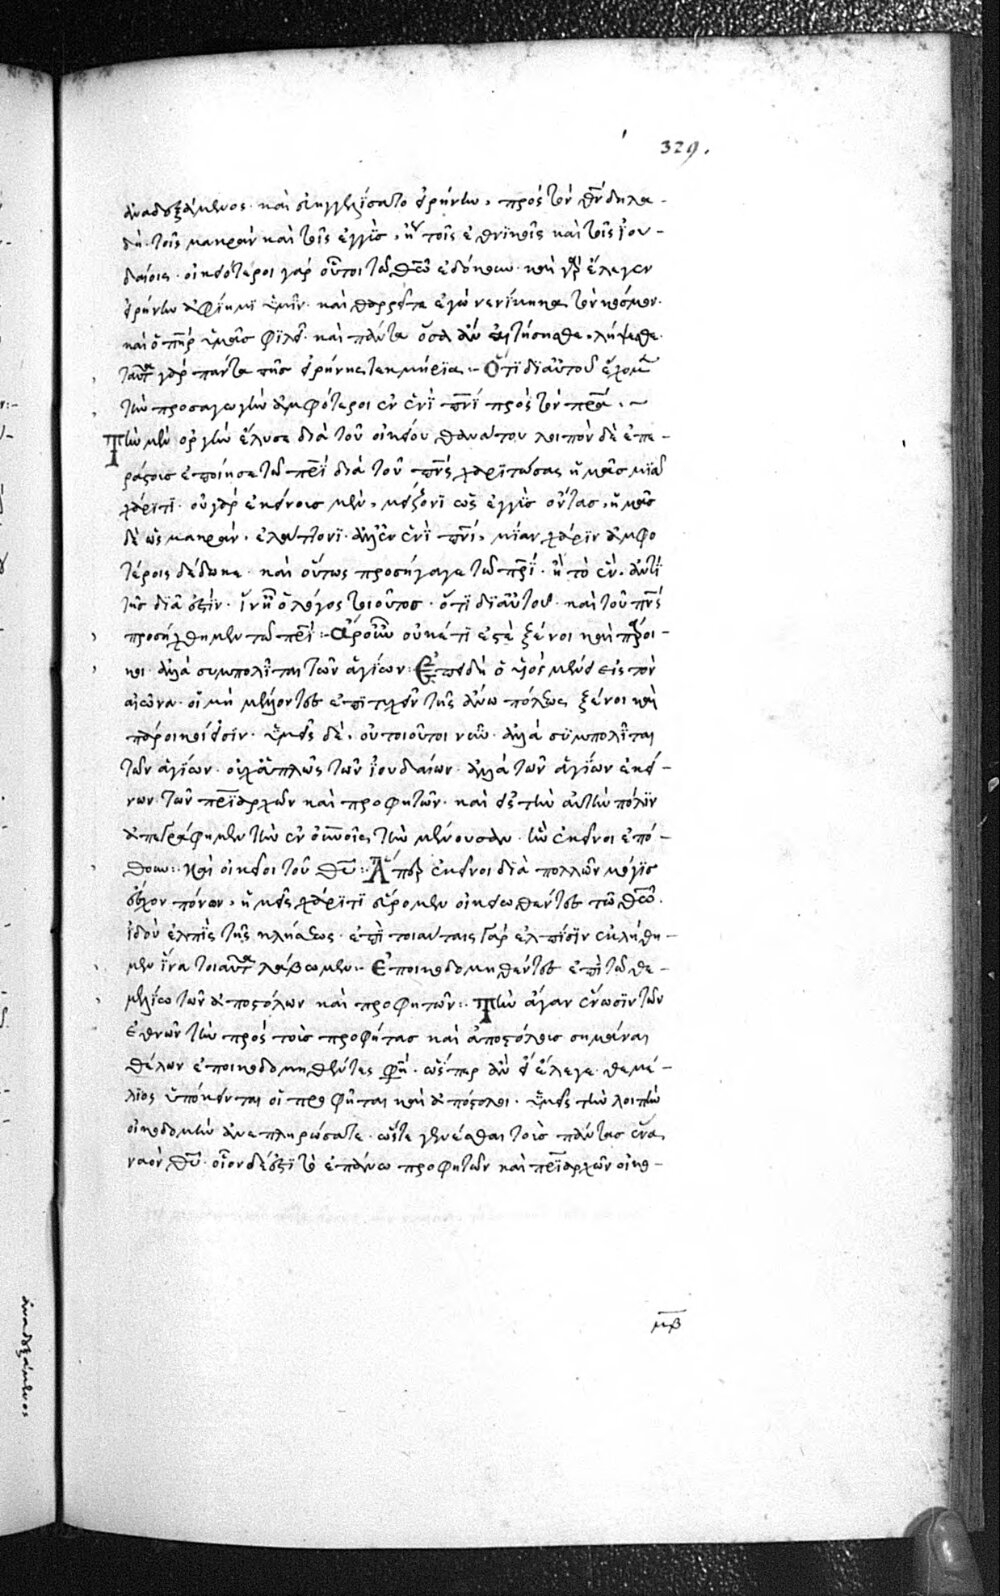 329.
ἀναδεξάμενος· καὶ εὐηγγελίσατο εἰρήνην, πρὸς τὸν θν̄ δηλα-
δή· τοῖς μακρὰν καὶ τοῖς ἐγγὺς, ἤτοι τοῖς ἐθνικοῖς καὶ τοῖς ἰου-
δαίοις· οἰκειότεροι γὰρ οὗτοι τῶ θεῶ ἐδόκουν· καὶ γὰρ ἔλεγεν
εἰρήνην ἀφίημι ὑμῖν· καὶ θαρσεῖτε ἐγὼ νενίκηκα τὸν κόσμον·
καὶ ὁ πη̄ρ ὑμᾶς φιλεῖ· καὶ πάντα ὅσα ἂν αἰτήσησθε, λήψεσθε·
ταῦτα γὰρ πάντα τῆς εἰρήνης τεκμήρια:- Ὅτι δι αὐτοῦ ἔχομεν
τὴν προσαγωγὴν ἀμφότεροι ἐν ἑνὶ πνῑ πρὸς τὸν πρ̄α:~
Τὴν μὲν ὀργὴν ἔλυσε διὰ τοῦ οἰκείου θανάτου λοιπὸν δὲ ἐπε-
ράστους ἐποίησε τῶ πρ̄ι διὰ τοῦ πν̄ς χαριτώσας ἡμᾶς μιᾶ
χάριτι· οὐ γὰρ ἐκείνοις μὲν, μείζονι ὡς ἐγγὺς οὖσιν, ἡμᾶς
δὲ ὡς μακρὰν, ἐλάττονι· ἀλλ' ἐν ἑνὶ πνῑ, μίαν χάριν ἀμφο
τέροις δέδωκε· καὶ οὕτως προσήγαγε τῶ πρ̄ι· ἢ τὸ ἐν, ἀντὶ
τῆς διά ἐστιν· ἵν' ἦ ὁ λόγος τοιοῦτος· ὅτι δι αὐτοῦ· καὶ τοῦ πν̄ς
προσήχθημεν τῶ πρ̄ι:- Ἄρα οὖν οὐκέτι ἐστὲ ξένοι καὶ πάροι-
κοι· ἀλλὰ συμπολῖται τῶν ἁγίων: Ἐπειδὴ ὁ νόμος μένει εἰς τὸν
αἰῶνα· οἱ μὴ μέλλοντες ἐπιτυχεῖν τῆς ἄνω πόλεως ξένοι καὶ
πάροικοί εἰσιν· ὑμεῖς δὲ, οὐ τοιοῦτοι νῦν· ἀλλὰ συμπολῖται
τῶν ἁγίων· οὐχ ἁπλῶς τῶν ἰουδαίων· ἀλλὰ τῶν ἁγίων ἐκεί-
νων τῶν πρ̄ιαρχῶν καὶ προφητῶν· καὶ εἰς τὴν αὐτὴν πόλιν
ἀπεγράφημεν τὴν ἐν οὐνοῖς, τὴν μένουσαν· ἣν ἐκεῖνοι ἐπό-
θουν:· Καὶ οἰκεῖοι τοῦ θῡ:· Ἅπερ ἐκεῖνοι διὰ πολλῶν μόγις
ἔσχον πόνων, ἡμεῖς χάριτι εὕρομεν οἰκειωθέντες τῶ θεῶ·
ἰδοὺ ἐλπὶς τῆς κλήσεως· ἐπὶ τοιαύταις γὰρ ἐλπίσιν ἐκλήθη-
μεν ἵνα τοιαῦτα λάβωμεν:- Ἐποικοδομηθέντες ἐπὶ τῶ θε-
μελίω τῶν ἀποστόλων καὶ προφητῶν:· Τὴν ἄγαν ἕνωσιν τῶν
ἐθνῶν τὴν πρὸς τοὺς προφήτας καὶ ἀποστόλους σημᾶναι
θέλων ἐποικοδομηθέντες φησὶ· ὥσπερ ἂν εἰ ἔλεγε· θεμέ-
λιος ὑπόκεινται οἱ προφῆται καὶ ἀπόστολοι· ὑμεῖς τὴν λοιπὴν
οἰκοδομὴν ἀνεπληρώσατε· ὥστε γενέσθαι τοὺς πάντας ἕνα
ναὸν θῡ· οἷον δέ ἐστι τὸ ἐπάνω προφητῶν καὶ πρ̄ιαρχῶν οἰκο-
μβ
ἀναδεξάμενος